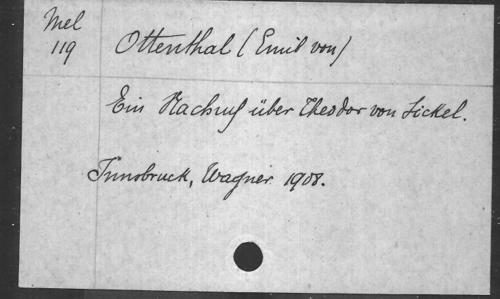 Mel
119
Ottenthal (Emil von)
Ein Nachruf über Theodor von Sickel.
Innsbruck, Wagner 1908.